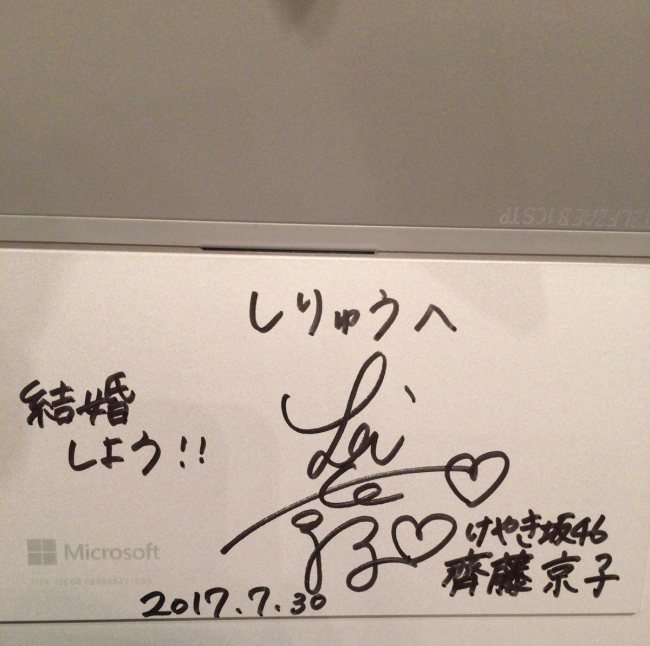 しりゅうへ
結婚
しよう!!
けやき坂46
齊藤京子
Microsoft
2017.7.30